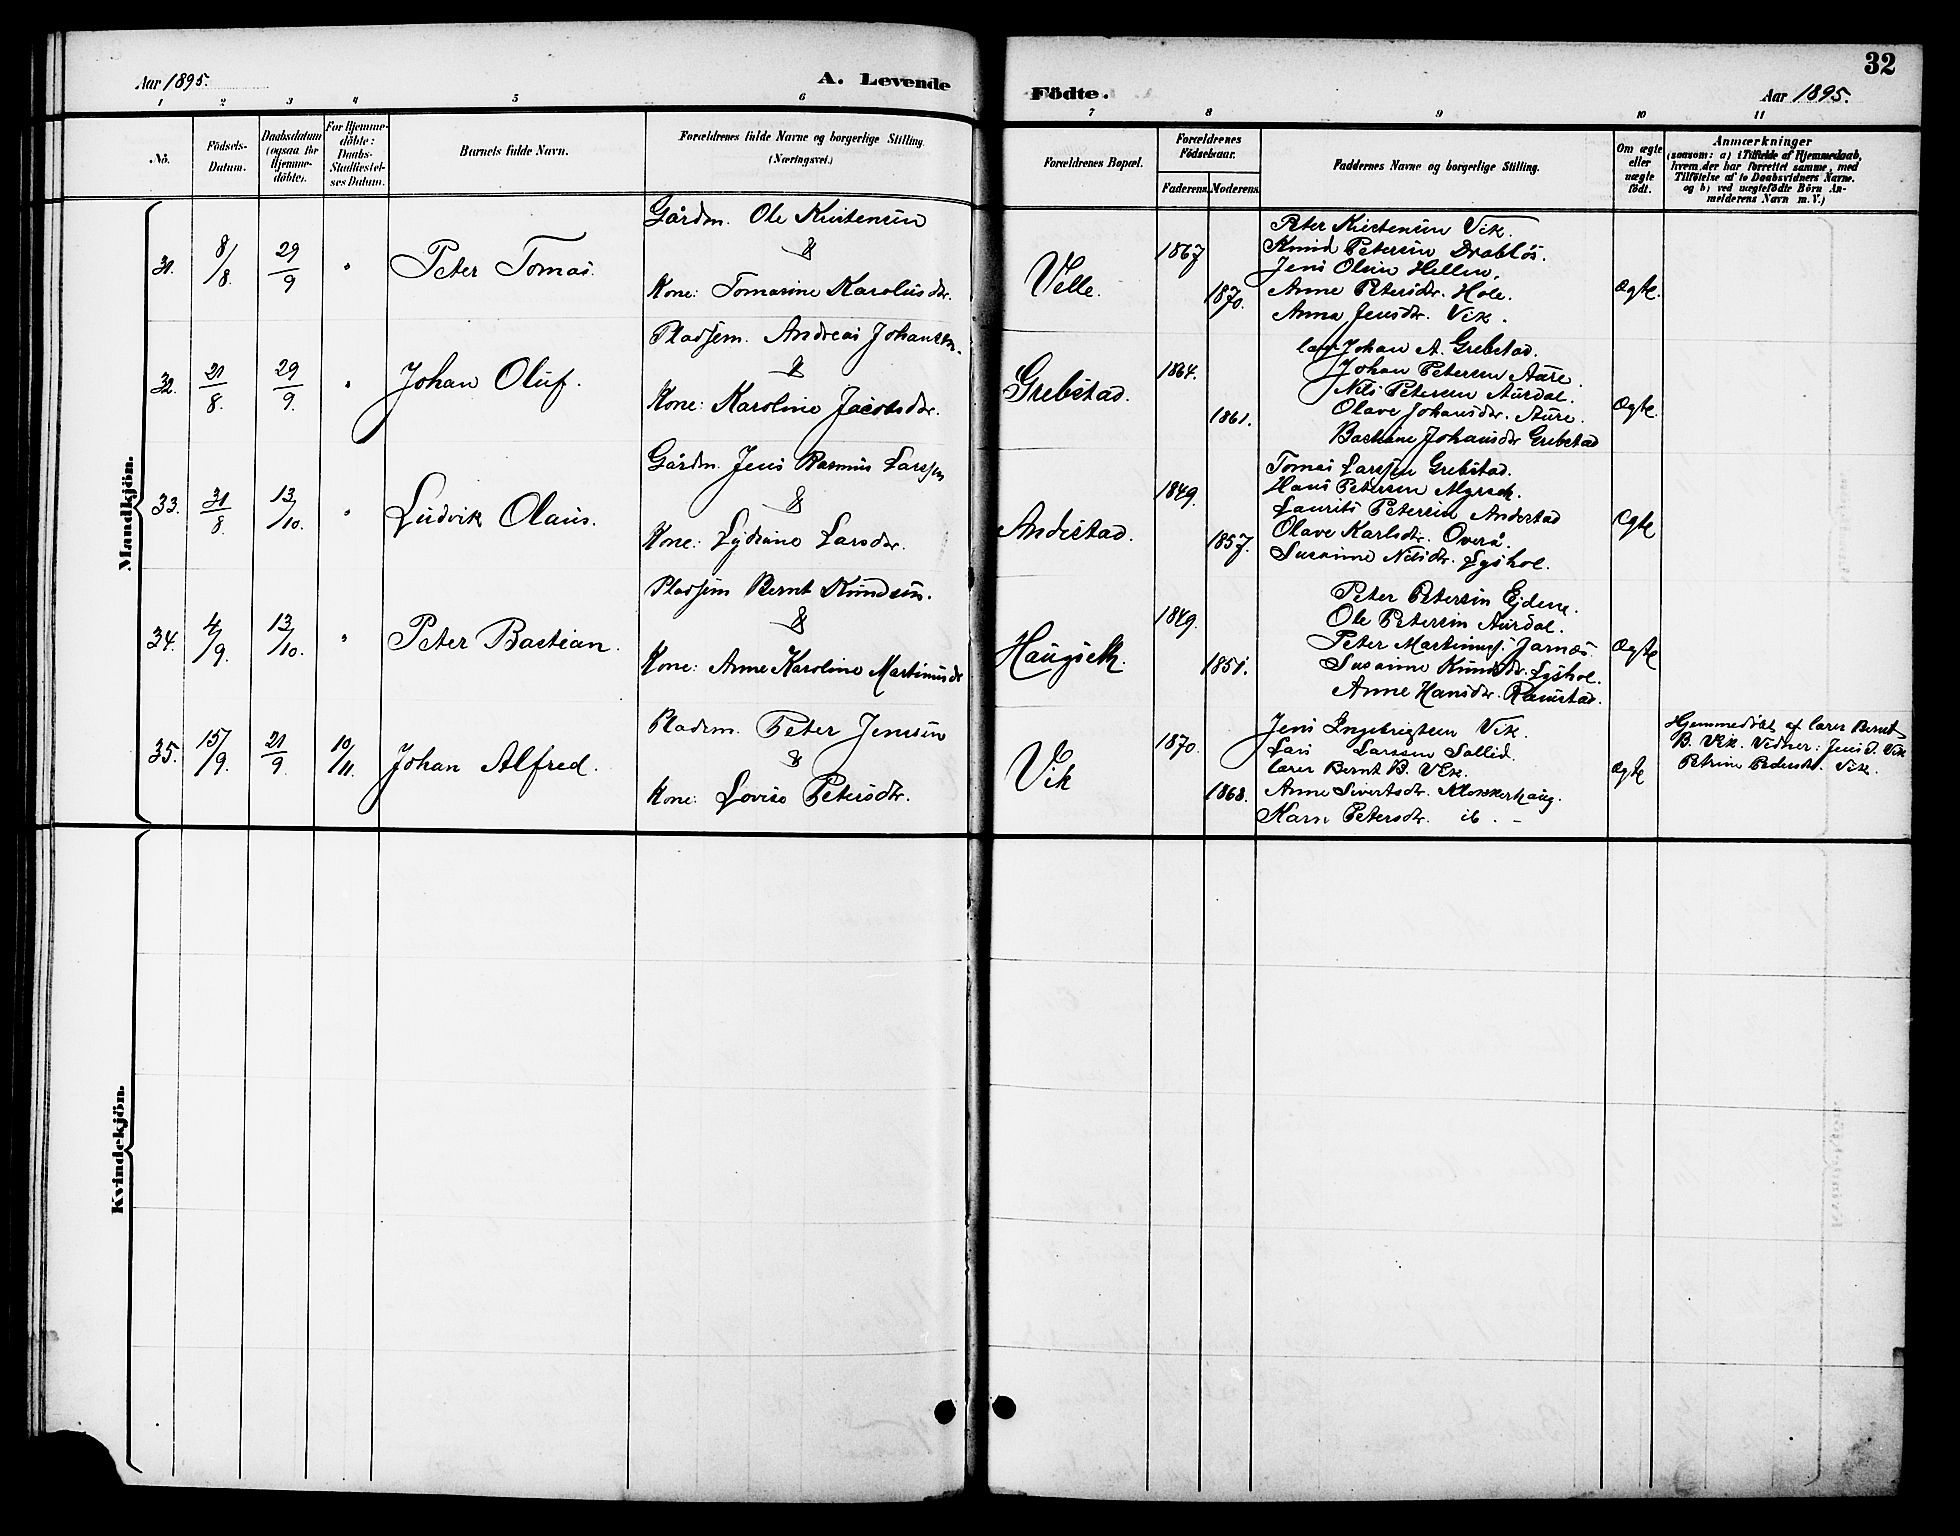 Aar 1895.
A. Levende
Födte.
Aar 1895.
32
1 2 3 4 5 6 7 8 9 10 11
No.
Födsels-
Datum.
Daabsdatum
(ogsaa for
Hjemme-
döbte).
For Hjemme-
döbte:
Daabs-
Stadfæstel-
ses Datum.
Barnets fulde Navn.
Forældrenes fulde Navne og borgerlige Stilling.
(Næringsvei.)
Forældrenes Bopæl.
Forældrenes
Födselsaar.
Faderens. Moderens.
Faddernes Navne og borgerlige Stilling.
Om ægte
eller
uægte
födt.
Anmærkninger
(saasom: a) i Tilfælde af Hjemmedaab,
hvem der har forrettet samme, med
Tilföielse af to Daabsvidners Navne.
og b) ved uægtefödte Börn An-
melderens Navn m. V.)
Mandkjön.
31. 8/8. 29/9 " Peter Tomas.
Gårdm. Ole Kristensen
&
Kone: Tomasine Karolusdr.
Velle.
1867
1870.
Peter Kristensen Vik.
Knud Petersen Drabløs.
Jens Olsen Hellen.
Anne Petersdr. Hole.
Anna Jensdr. Vik.
Ægte.
32. 21/8. 29/9. " Johan Oluf.
Pladsem. Andreas Johansen.
&
Kone: Karoline Jacobsdr.
Grebstad.
1864.
1861.
Johan A. Grebstad.
Johan Petersen Aure.
Nils Petersen Aurdal.
Olave Johansdr. Aure.
Bastiane Johansdr Grebstad
Ægte.
33. 31/8. 13/10. " Ludvik Olaus.
Gårdm. Jens Rasmus Larssen
&
Kone: Lydiane Larsdr.
Andestad.
1849.
1857.
Tomas Larssen Grebstad.
Hans Petersen
Laurits Petersen Andestad
Olave Karlsdr. Overå.
Susanne Nilsdr. Lyshol.
Ægte
34. 4/9. 13/10. " Peter Bastian.
Pladsem Bernt Knudsen.
&
Kone: Anne Karoline Martinusdr
Haugseth.
1849.
1851.
Peter Petersen Ejdene.
Ole Petersen Aurdal.
Peter Martinus. Jarnes.
Susanne Knudsdr. Lyshol.
Anne Hansdr. Ramstad.
Ægte
35. 15/9. 21/9 10/11. Johan Alfred.
Pladsm. Peter Jensen
&
Kone: Lovise Petersdr.
Vik
1870.
1868.
Jens Ingebrigtsen Vik.
Lars Larssen Sallid.
lærer Bernt B. Vik.
Anne Sivertsdr. Klokkerhaug.
Karn Petersdr. ib. -
Ægte
Hjemmedöbt af lærer Bernt
B. Vik. Vidner: Jens I. Vik
Petrine Pedersdr. Vik.
Kvindekjön.